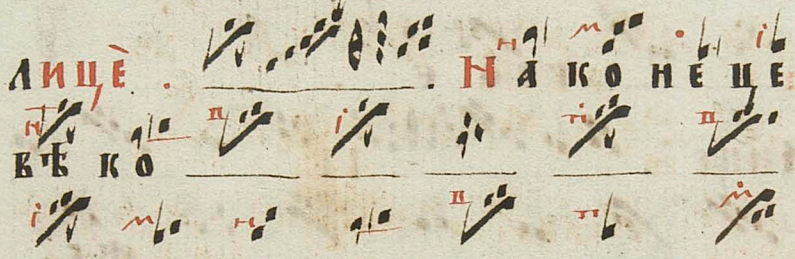 лицѐ . На конеце
вѣко